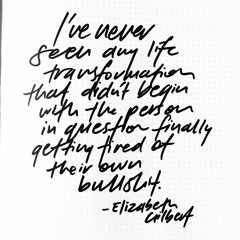 I've never
seen any life
transformation
that didn't begin
with the person
in question finally
getting tired of
their own
bullshit.
-Elizabeth
Gilbert